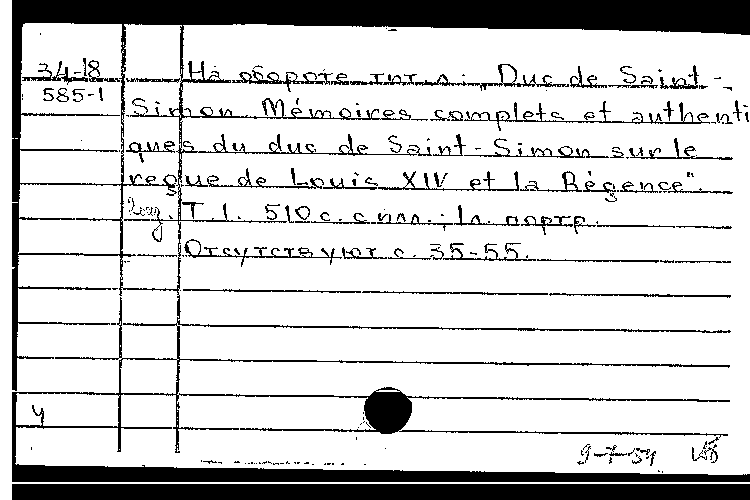 34-18 На обороте тит.л: „Duc de Saint-
585-1 Simon Mémoires complets et authenti
ques du duc de Saint-Simon sur le
regue de Louis XIV et la Régence".
Т. 1. 510 с. с илл.; 1 л. портр.
Отсутствуют с. 35-55.
4
9-7-54